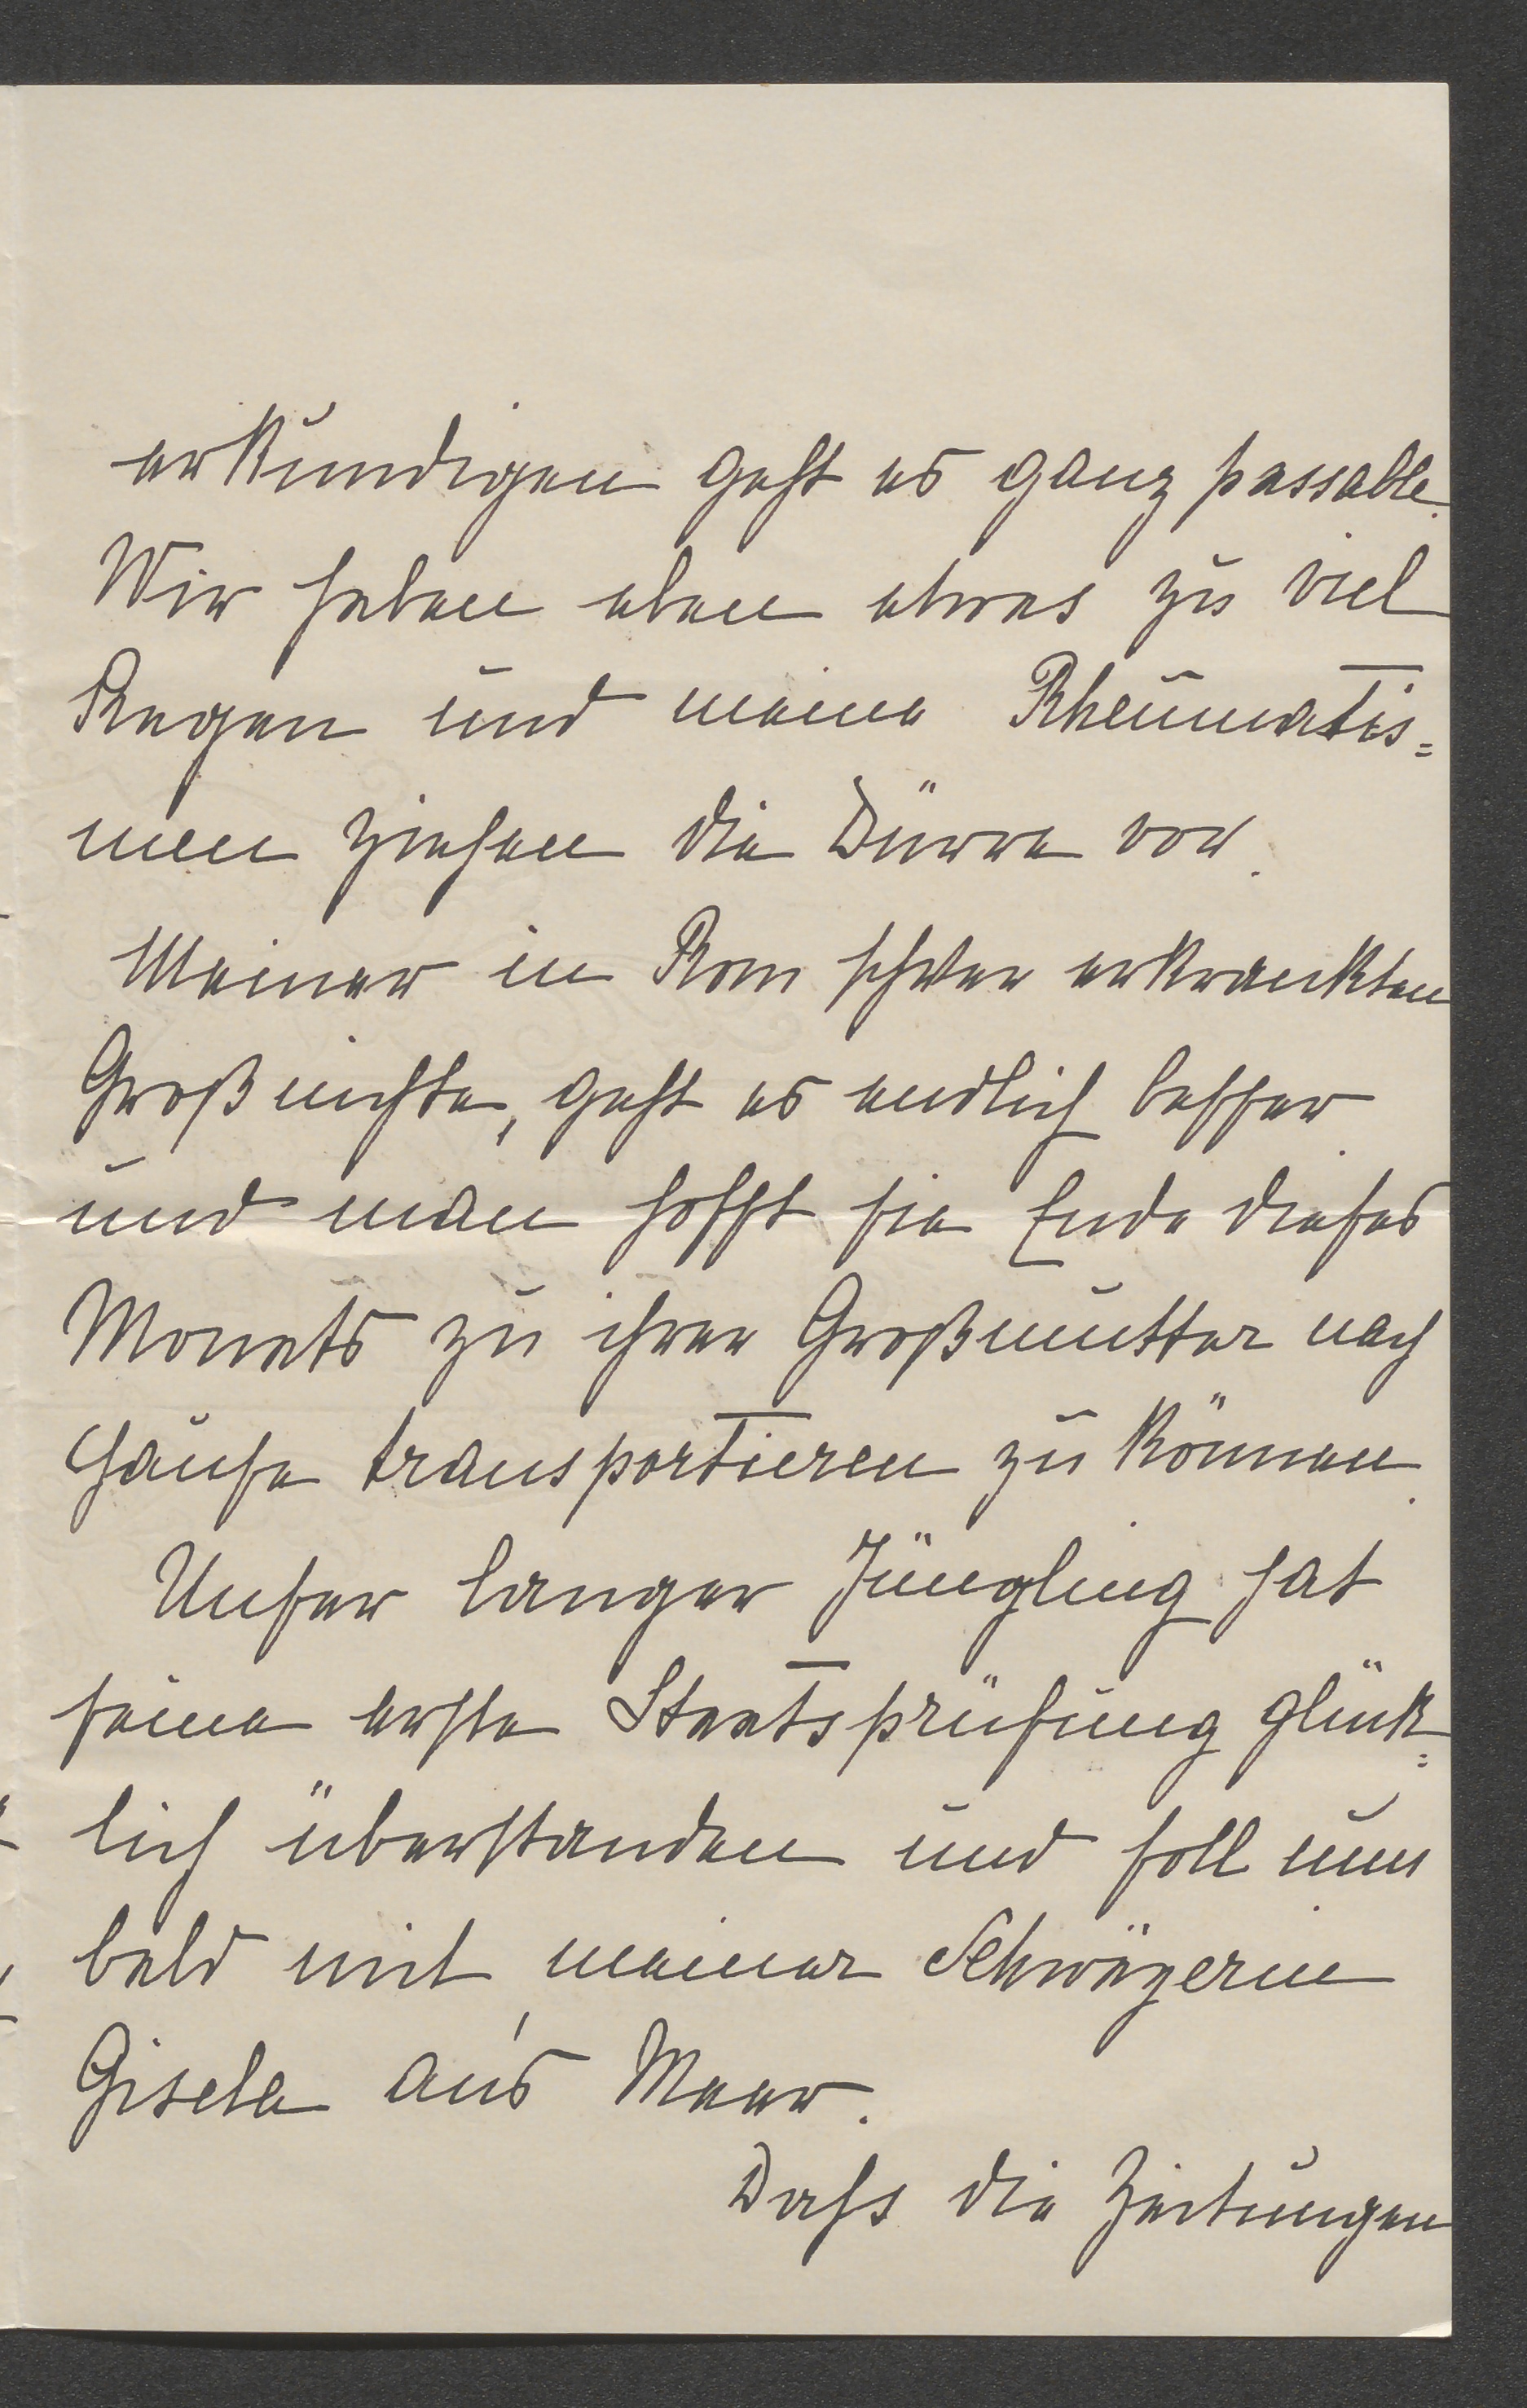 erkundigen geht es ganz passable.
Wir haben eben etwas zu viel
Regen und meine Rheumatis=
men ziehen die Dürre vor.
Meiner in Rom schwer erkrankten
Großnichte, geht es endlich besser
und man hofft sie Ende dieses
Monats zu ihrer Großmutter nach
Hause transportieren zu können.
Unser langer Jüngling hat
seine erste Staatsprüfung glück=
lich überstanden und soll nun
bald mit meiner Schwägerin
Gisela an's Meer.
Dass die Zeitungen